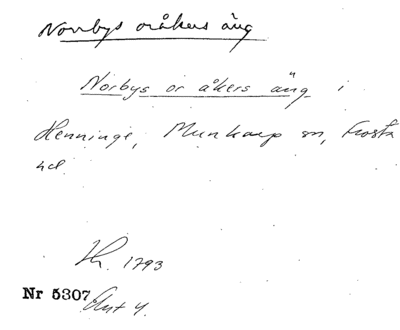 Norrbys oråkers äng
Norbys or åkers äng i
Henninge, Munkarp sn, Frosta
hd.
Kh. 1793
Nr 5307